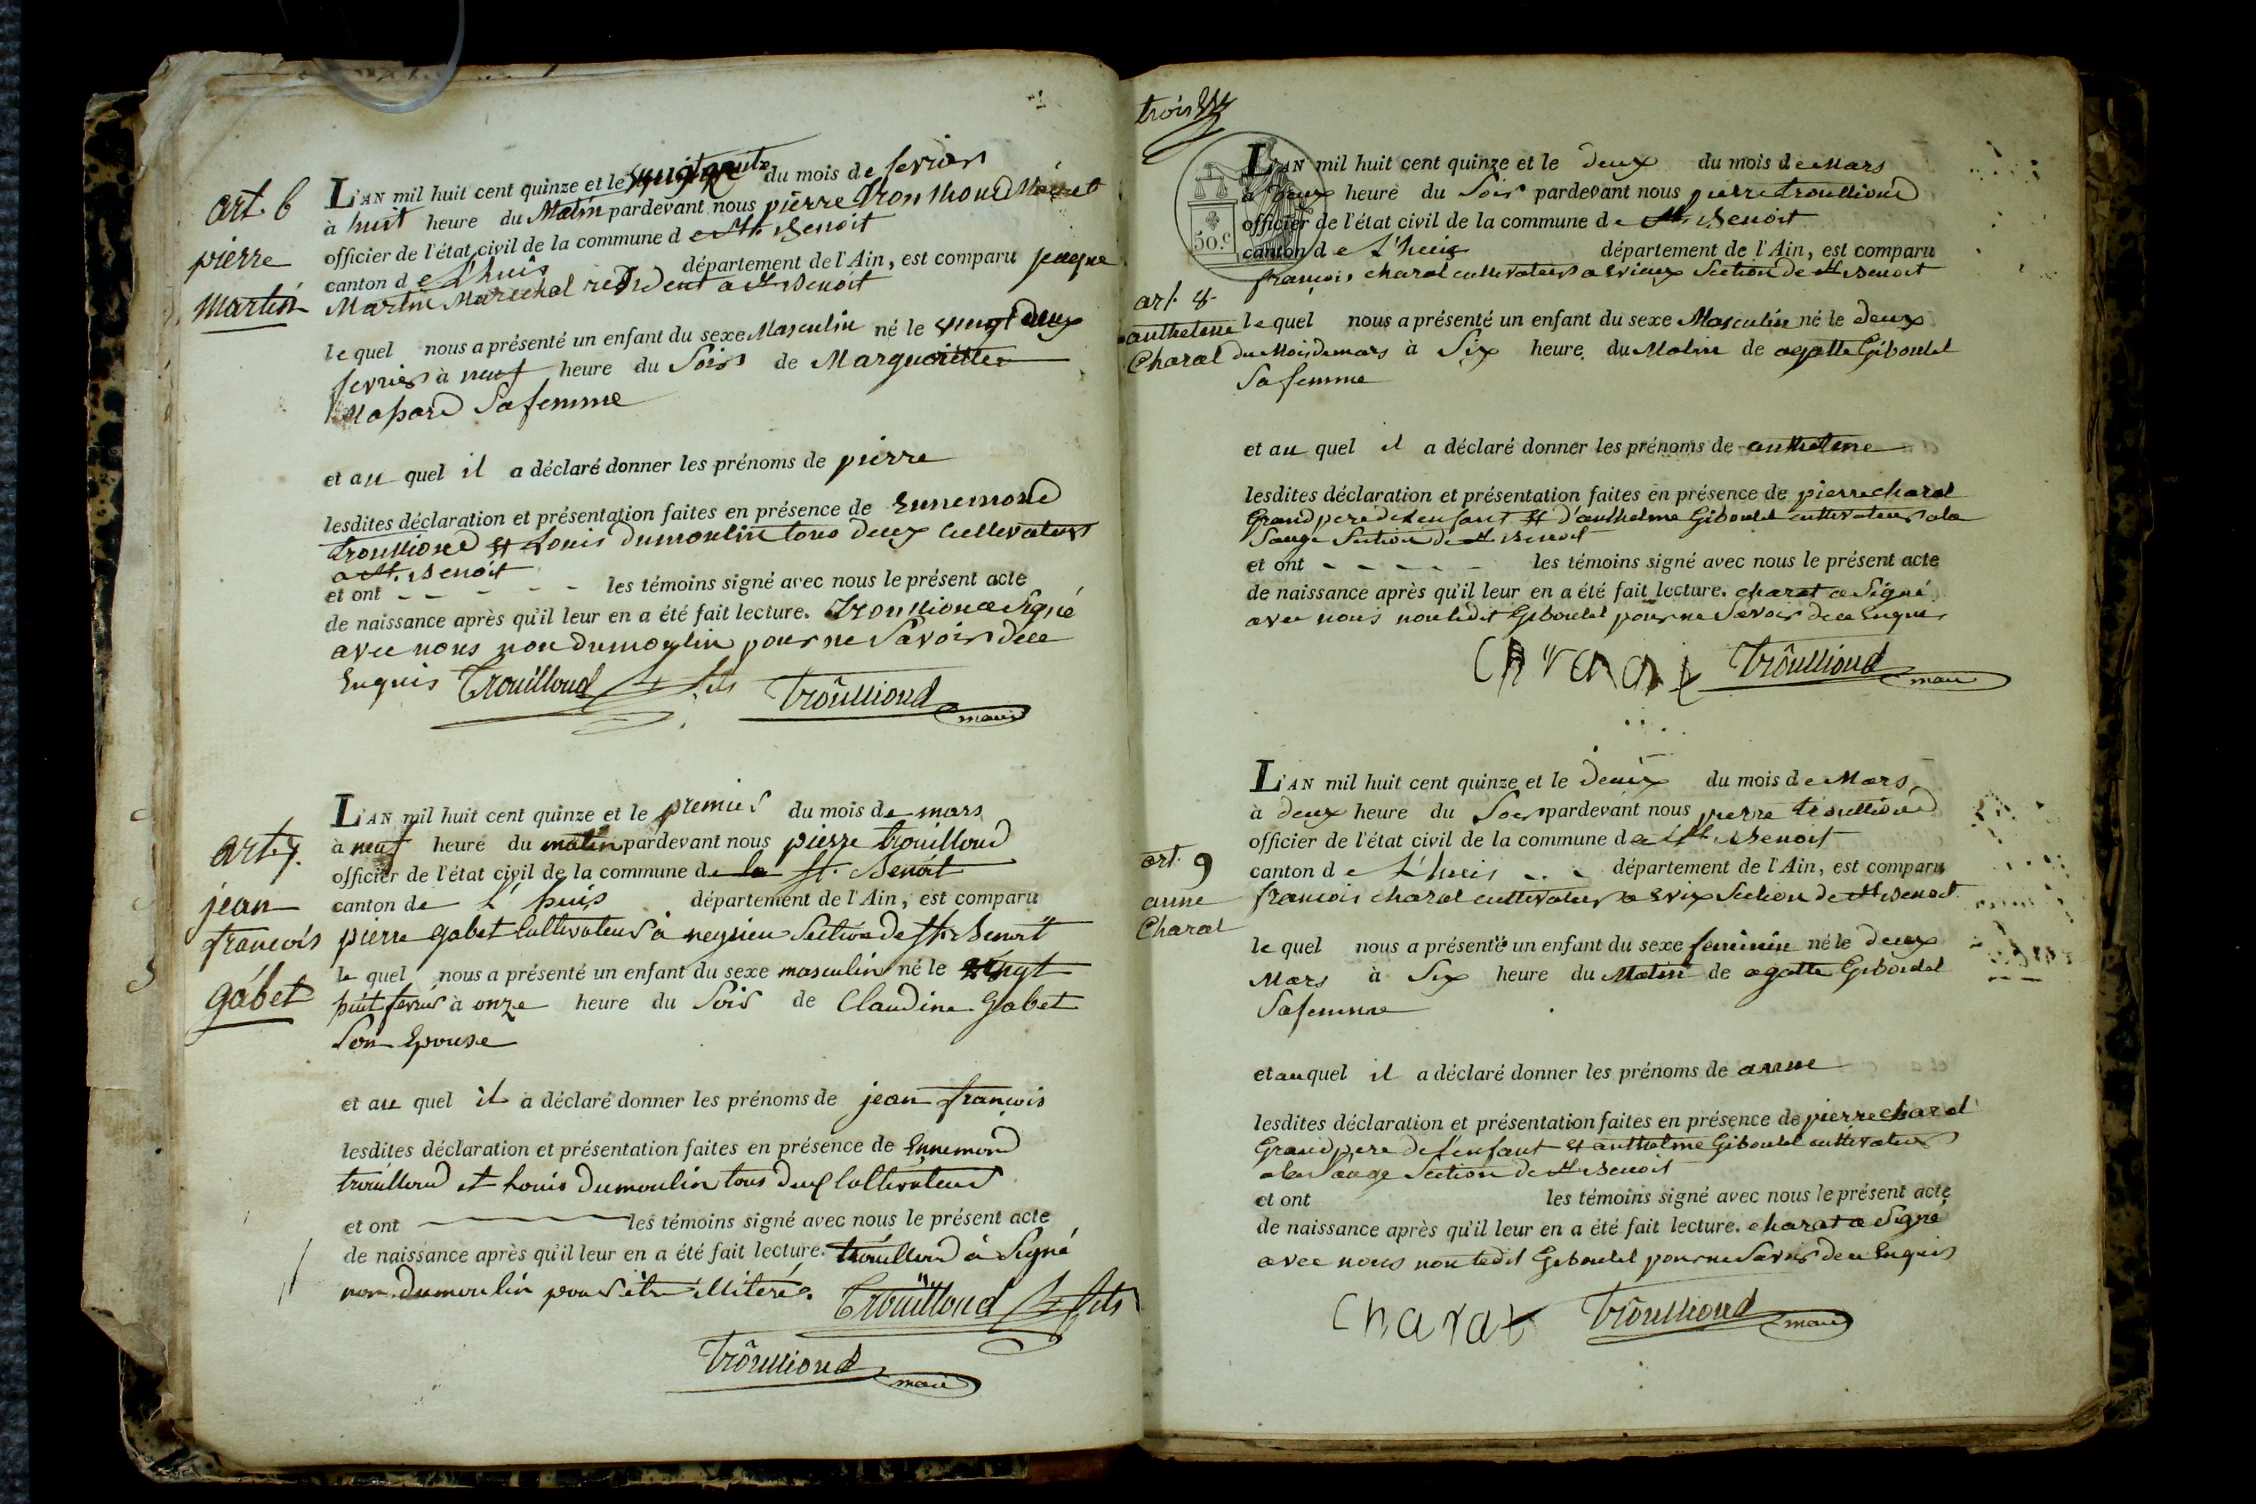 art. 6
pierre
Martin
L'AN mil huit cent quinze et le du mois de fevrier
à huit heure du Matin pardevant nous pierre Troullioud
officier de l'état civil de la commune de St. Benoit
canton de L'huis département de l'Ain, est comparu jacque
Martin Marechal resident a St Benoit
le quel nous a présenté un enfant du sexe Masculin né le vingt deux
fevrier à neuf heure du Soir de Margueritte
Sa femme
et au quel il a déclaré donner les prénoms de pierre
lesdites déclaration et présentation faites en présence de Ennemond
Troullioud et Louis dumoulin tous deux Cultivateurs
a St. Benoit
et ont - - - - - les témoins signé avec nous le présent acte
de naissance après qu'il leur en a été fait lecture. Troullioud a Signé
avec nous non dumoulin pour ne Savoir de ce
Enquis Trouilloud fils Troullioud maire
art. 7.
jean
francois
gabet
L'AN mil huit cent quinze et le premier du mois de mars
à neuf heure du matin pardevant nous pierre trouilloud
officier de l'état civil de la commune de la St. Benoit
canton de L'huis département de l'Ain, est comparu
pierre gabet Cultivateur à neyrieu Section de St. Benoit
le quel nous a présenté un enfant du sexe masculin né le vingt
huit fevrier à onze heure du Soir de Claudine Gabet
Son Epouse
et au quel il a déclaré donner les prénoms de jean francois
lesdites déclaration et présentation faites en présence de Ennemond
trouilloud et Louis Dumoulin tous deux Cultivateurs
et ont les témoins signé avec nous le présent acte
de naissance après qu'il leur en a été fait lecture. trouilloud à Signé
non dumoulin pour être illiteré.
Trouilloud fils
Troullioud maire
trois
50.c
art. 8
anthelme
Charat
L'AN mil huit cent quinze et le deux du mois de Mars
à deux heure du Soir pardevant nous pierre troullioud
officier de l'état civil de la commune de St. Benoit
canton de L'huis département de l'Ain, est comparu
françois charat cultivateur a Evieux Section de St Benoit
le quel nous a présenté un enfant du sexe Masculin né le deux
du Mois de mars à Six heure du Matin de agatte Giboulet
Sa femme
et au quel il a déclaré donner les prénoms de anthelme
lesdites déclaration et présentation faites en présence de pierre charat
Grand pere de l'enfant Et d'anthelme Giboulet cultivateur a la
Sauge Section de St Benoit
et ont - - - - - les témoins signé avec nous le présent acte
de naissance après qu'il leur en a été fait lecture. charat a Signé
avec nous non ledit Giboulet pour ne Savoir de ce Enquis
Troullioud maire
art. 9
anne
Charat
L'AN mil huit cent quinze et le deux du mois de Mars
à deux heure du Soir pardevant nous pierre troullioud
officier de l'état civil de la commune de St Benoit
canton de L'huis département de l'Ain, est comparu
francois charat cultivateur a Evix Section de St Benoit
le quel nous a présenté un enfant du sexe feminin né le deux
Mars à Six heure du Matin de agatte Giboulet
Sa femme
et au quel il a déclaré donner les prénoms de anne
lesdites déclaration et présentation faites en présence de pierre charat
Grand pere de l'enfant Et anthelme Giboulet cultivateur
a la Sauge Section de St Benoit
et ont les témoins signé avec nous le présent acte
de naissance après qu'il leur en a été fait lecture. charat a Signé
avec nous non ledit Giboulet pour ne Savoir de ce Enquis
Charat Troullioud maire